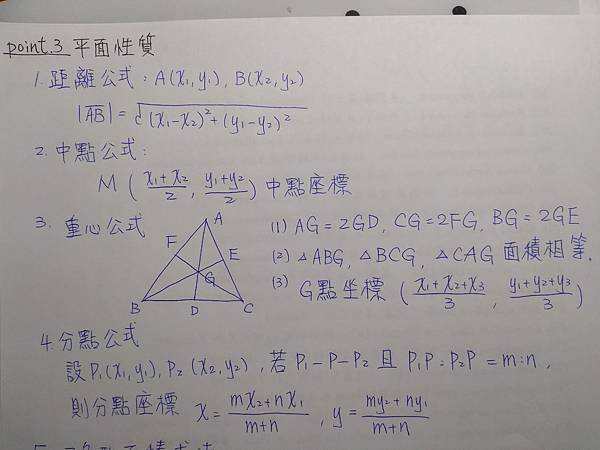 point.3 平面性質
1. 距離公式：A(x₁,y₁), B(x₂,y₂)
|AB| = √(x₁-x₂)²+(y₁-y₂)²
2. 中點公式：
M ( x₁+x₂/2 , y₁+y₂/2 ) 中點座標
3. 重心公式
A
F
E
G
B
D
C
(1) AG=2GD, CG=2FG, BG=2GE
(2) △ABG, △BCG, △CAG 面積相等.
(3) G點坐標 ( x₁+x₂+x₃/3 , y₁+y₂+y₃/3 )
4. 分點公式
設P₁(x₁,y₁), P₂(x₂,y₂), 若 P₁-P-P₂ 且 P₁P：P₂P = m:n,
則分點座標 x = mx₂+nx₁/m+n , y = my₂+ny₁/m+n